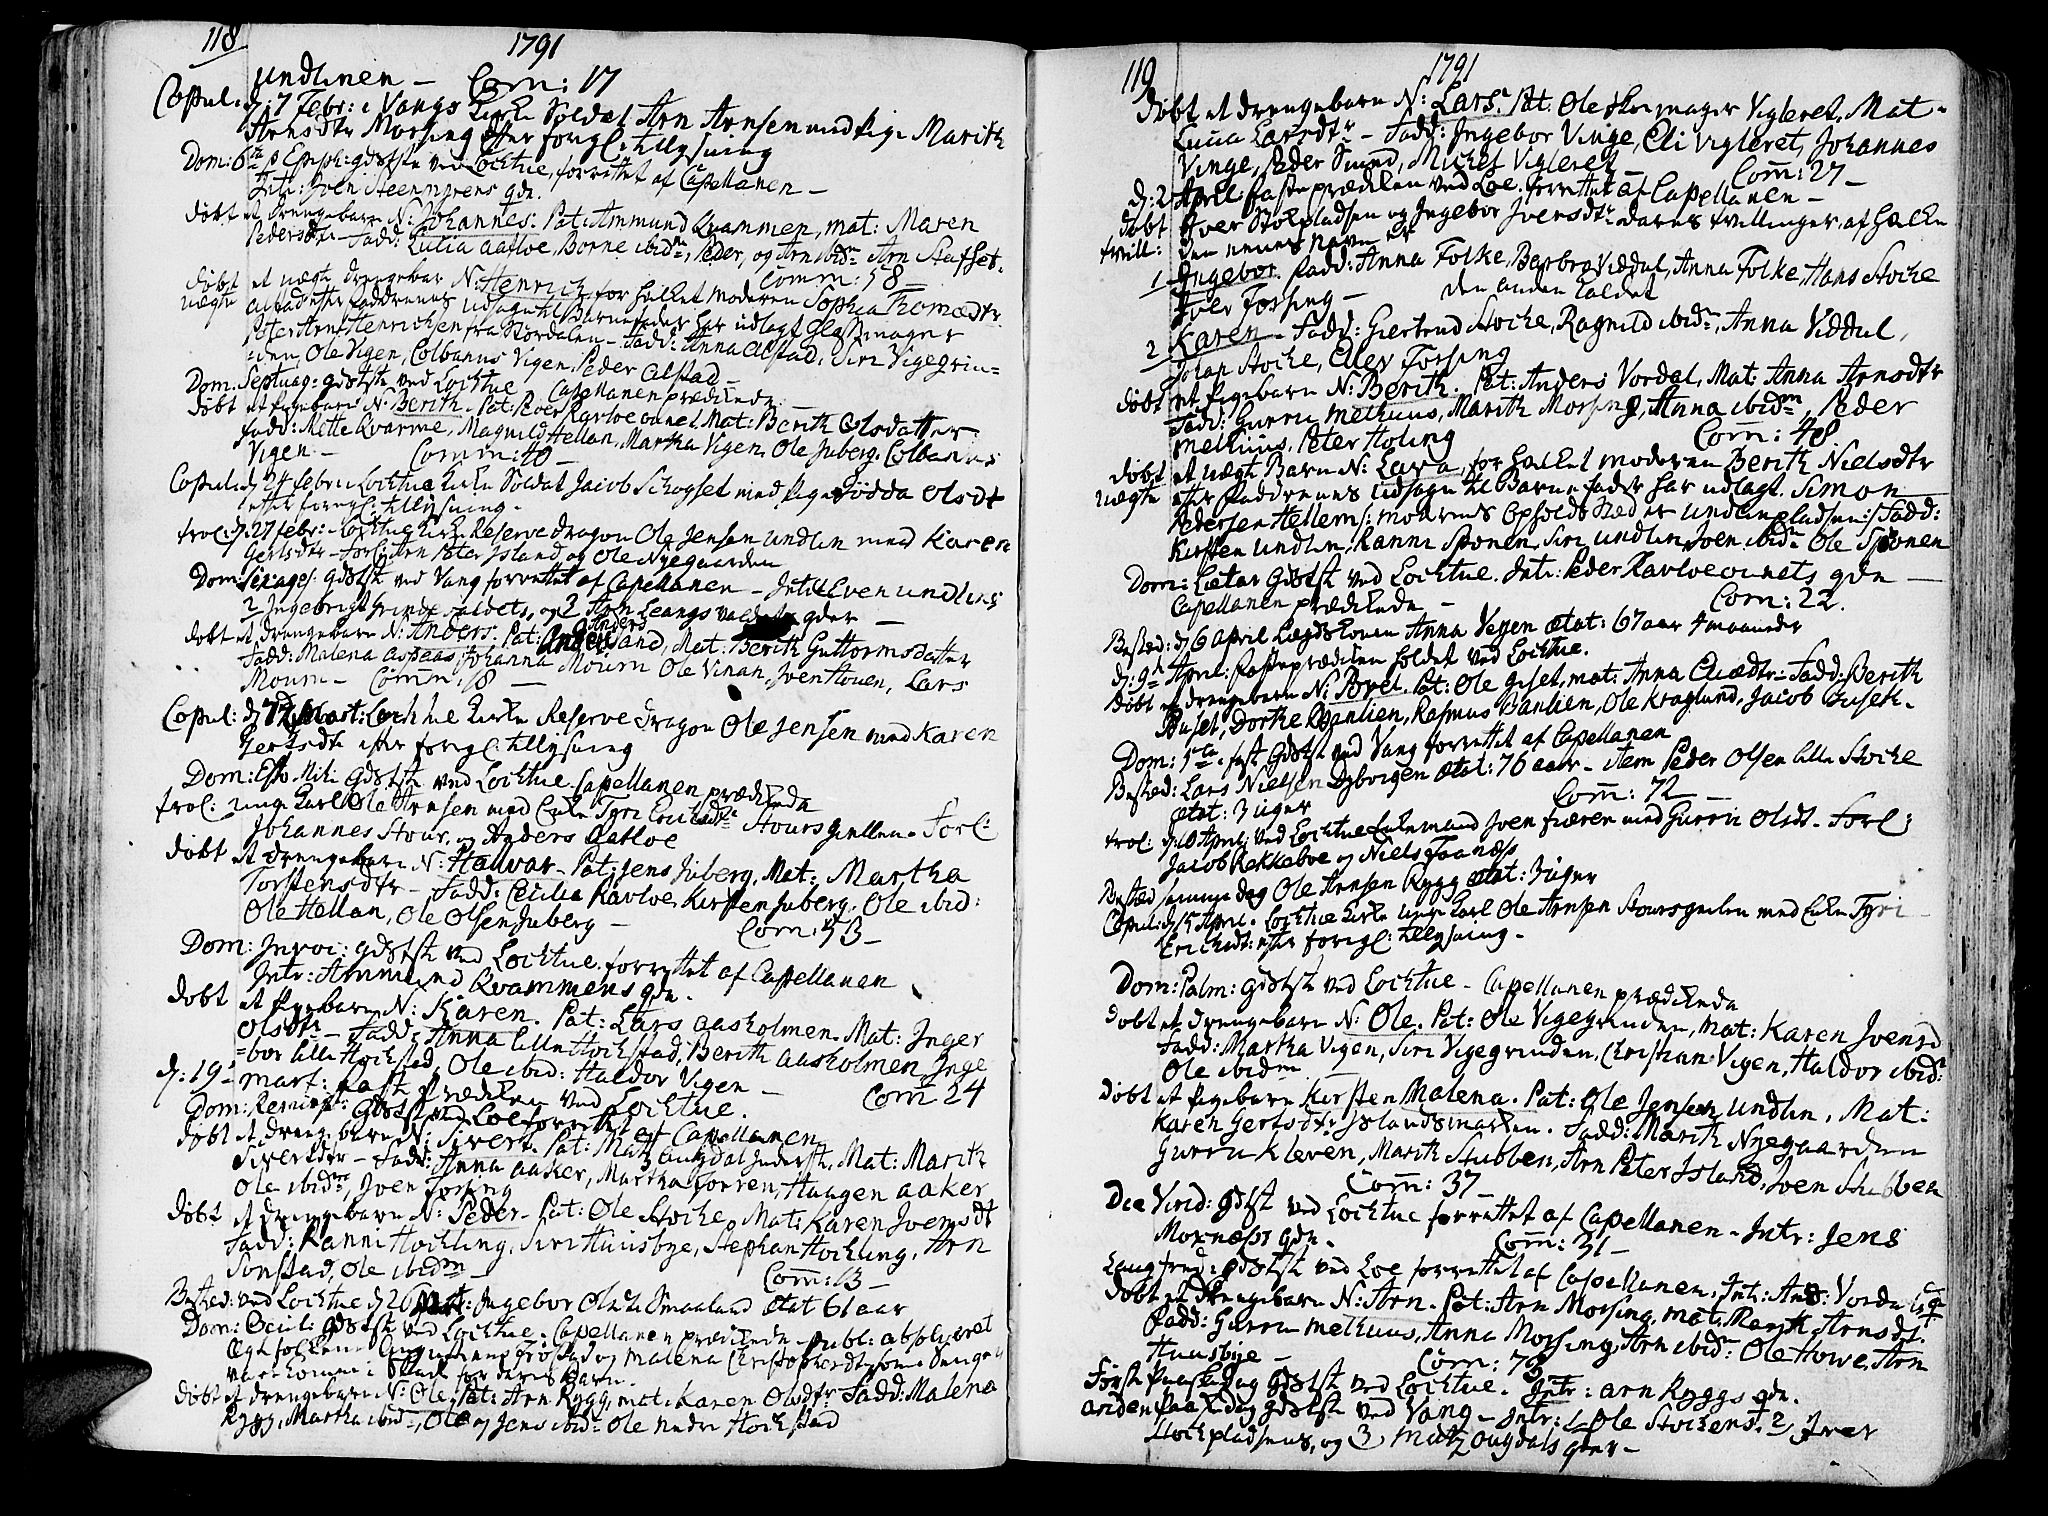 118 1791
Undlinen – Com: 17
Copul: d: 7 Febr: i Vangs Kirke Soldat Arn Arnsen med Pige Marith
Arnsdtr Morsing efter foregl: tillysning
Dom: 6ta p Epiph: gudstste ved Lochtue, forrettet af Capellanen –
Intr: Joen Steenmyrens qde.
døbt et drengebarn N: Johannes. Pat: Ammund Kvammen, mat: Maren
Pedersdtr – Fadd: Lucia Aafloe, Borne ibidm, Peder, og Arn ibidm Arn Stafset.
Comm: 58
døbt et uægte drengebar N: Henrich for hvilket moderen Sophia Thomædtr
uægte Alstad efter faddrenes udsagn til Barnefader har udlagt Glassmager
Peter Arnt Henrichsen fra Størdalen – Fadd: Anna Alstad, Siri Vigegrin=
=den, Ole Vigen, Colbanus Vigen, Peder Alstad
Dom: Septuag: gudstste ved Lochtue Capellanen prædikede
døbt et Pigebarn N: Berith. Pat: Peder Ravloe vanet, Mat: Berith Olsdatter
Fadd: Mette Kvarme, Magnild Hellan, Martha Vigen, Ole Juberg, Colbanus
Vigen – Comm: 40
Copul: d: 24 febr: i Lochtue Kirke Soldat Jacob Schogset med Pige Gødda Olsdt
efter foregl: tillysning.
trol: d: 27 febr: i Lochtue Kirke Reserve dragon Ole Jensen Undlin med Karen
Gertsdtr – forl: Arn Peter Island og Ole Nyegaarden
Dom: Sexages: gudstst ved Vang forrettet af Capellanen – Intr: 1 Even Undlins
2 Ingebrigt Grindevaldets, og 3 Arn Leangsvaldets qder –
døbt et drengebarn N: Anders. Pat: Anders Sand, Mat: Berith Guttormsdatter
Fadd: Malena Aspaas, Johanna Mourn Ole Vinan, Iver Houen, Lars
Mourn – Comm: 18
Copul: d: Mart: Lochtue Kirke Reserve dragon Ole Jensen med Karen
Gertsdtr efter foregl: tillysning
Dom: Esto Mihi gudstst ved Lochtue. Capellanen prædikede
trol: unge Karl Ole Arnsen med Enke Tyri Erichsdtr Stoursgrillen – Forl:
Johannes Stour, og Anders Aafloe
døbt et drengebarn N: Halvar – Pat: Jens Juberg, Mat: Martha
Torstensdtr – Fadd: Cecilia Ravloe, Kirsten Juberg, Ole ibid:
Ole Hellan, Ole Olsen Juberg – Com: 53 –
Dom: Invoc: gudstst ved Lochtue forrettet af Capellanen
Intr: Ammund Kvammens qde.
døbt et Pigebarn N: Karen. Pat: Lars Aasholmen. Mat: Inger
Olsdtr – Fadd: Anna lille Hochstad, Berith Aasholmen, Inge
=bor lille Hochstad, Ole ibid: Haldor Vigen –
d: 19 – mart: Fast Prædiken ved Lochtue. Com 24
Dom: Reminis: gudstst ved Loe forrettet af Capellanen
døbt et drengebarn N: Sivert. Pat: Matz Augdal Inderst, Mat: Marith
Sivertsdtr – Fadd: Anna Aaker, Martha Forren, Haagen Aaker
Ole ibidm, Joen Forsing
døbt et drengebarn N: Peder – Pat: Ole Stoche, Mat: Karen Iversdt
Fadd: Ranni Hochling, Siri Huusbye, Stephan Hochling, Arn
Sonstad, Ole ibidm – Com: 13 –
Bested: ved Lochtue d 26 Mart: Ingebor Olsdtr Smaaland ætat 61 aar
Dom: Occul: gudstst ved Lochtue. Capellanen prædikede – publ: absolveret
Ægtefolkene Augustinus Frøstad og Malena Christophersdt: som Senge
vare komne i Skade for deres Barn.
døbt et drengebarn N: Ole. Pat: Arn Rygg, mat: Karen Olsdtr Fadd: Malena
Rygg, Martha ibidm, Ole og Jens ibid: Ole Nedre Hochstad
119 1791
døbt et drengebarn N: Lars. Pat: Ole Skomager Vigleret, Mat –
Lucia Larsdtr – Fadd: Ingebor Vinge, Eli Vigleret, Johannes
Vinge, Peder Sund, Michel Vigleret – Com: 27 –
d: 2 April: Fasteprædiken ved Loe forrettet af Capellanen –
døbt Iver Stokpladsen og Ingebor Iversdtr deres tvillinger, af hvilke
tvill: den eenes navn er
1 Ingebor. Fadd: Anna Folke, Barbro Viddul, Anna Folke, Hans Stoche
Iver Forsing – den anden kaldet
2 Karen – Fadd: Giertrud Stoche, Ragnild ibidm, Anna Viddul,
Johan Stoche, Elev Forsing
døbt et Pigebarn N: Berith. Pat: Anders Vordal, Mat: Anna Arnsdtr
Fadd: Gurru Melhuus, Marith Morsing, Anna ibidm, Peder
Melhuus, Peter Holing Com: 48
døbt et uægt Barn N: Lava, for hvilket moderen Berith Nielsdtr
uægte efter Faddrenes udsagn til Barnefader har udlagt Simon
Pedersen Hellem /: moderens Opholdsted er Undlinpladsen :/ Fadd:
Kirsten Undlin, Ranni Sponen, Siri Undlin, Joen ibidm Ole Sponen
Dom: Lætar Gudstst ved Lochtue. Intr: Peder Ravloevanets qde –
Capellanen prædikede – Com: 22.
Bested: d 6 April Lægdskonen Anna Vegen ætat: 67 aar 4 maaneder
d: 9de April: Fasteprædiken holdet ved Lochtue.
døbt et drengebarn N: Povel. Pat: Ole Giset, mat: Anna Eliædtr – Fadd: Berith
Buset, Dorthe Banlien, Rasmus Banlien, Ole Kraglund, Jacob Buseth.
Dom: 5ta i fast Gudstst ved Vang forrettet af Capellanen
Bested: Lars Nielsen Dybvigen ætat: 76 aar – item Peder Olsen lille Stoche
ætat: 3 uger Com: 72 –
trol: d: 10 April: ved Lochtue Enkemand Joen Fiæren med Gurru Olsdt – Forl:
Jacob Rekkeboe og Niels Faanæss
Bested samme dag Ole Arnsen Rygg ætat: 3 uger
Copul: d 15 April. Lochtue Kirke unge Karl Ole Arnsen Stoursgrilen med Enke Tyri
Erichsdt: efter foregl: tillysning –
Dom: Palm: gudstst ved Lochtue – Capellanen prædikede
døbt et drengebarn N: Ole. Pat: Ole Vigegrinden, Mat: Karen Iversd
Fadd: Martha Vigen, Siri Vigegrinden, Christian Vigen, Haldor ibidm
Ole ibidm
døbt et Pigebarn Kirsten Malena. Pat: Ole Jensen Undlin, Mat:
Karen Gertsdtr Islandsmarken. Fadd: Marith Nyegaarden
Gurru Kleven, Marith Stubben, Arn Peter Island, Joen Stubben
Com: 37 –
Die Virid: gudst ved Lochtue forrettet af Capellanen – Intr: Jens
Moxnæss qde. Com: 31 –
Langfred: gudstst ved Loe forrettet af Capellanen, Intr: And: Vordals qde
døbt et drengebarn N: Arn. Pat: Arn Morsing, mat: Marith Arnsdt.
Fadd: Gurru Melhuus, Anna Morsing, Arn ibidm Ole Howe, Arn
Huusbye – Com: 73
Første Paaskedag gudstst ved Lochtue. Intr: Arn Ryggs qde.
anden Paaskedag gudstst ved Vang – Intr: 1 Ole Stochens. 2, Iver
Stochpladsens, og 3 Matz Ougdals qder –